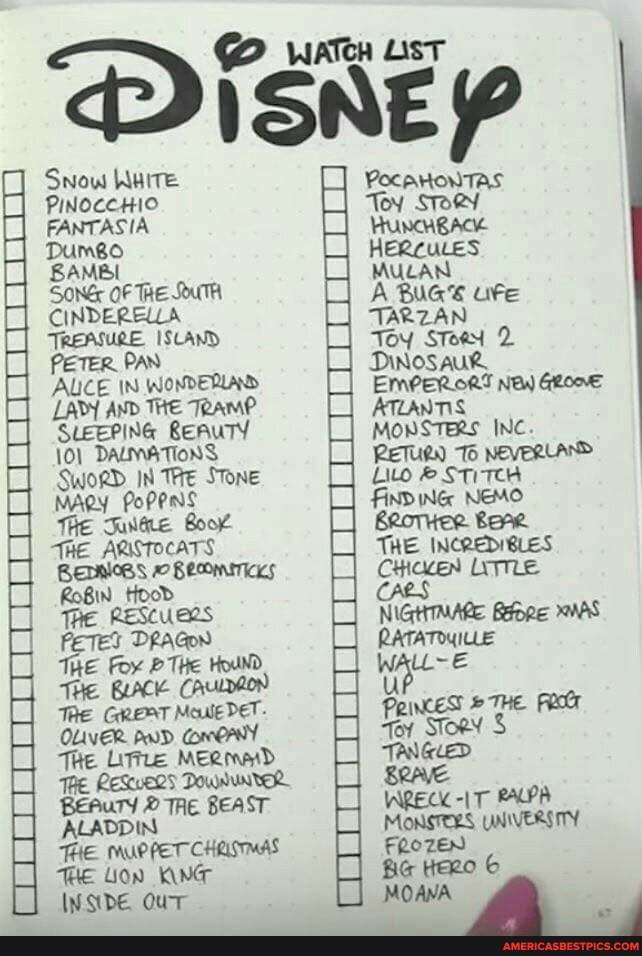 WATCH LIST
DISNEY
SNOW WHITE
PINOCCHIO
FANTASIA
DUMBO
BAMBI
SONG OF THE SOUTH
CINDERELLA
TREASURE ISLAND
PETER PAN
ALICE IN WONDERLAND
LADY AND THE TRAMP
SLEEPING BEAUTY
101 DALMATIONS
SWORD IN THE STONE
MARY POPPINS
THE JUNGLE BOOK
THE ARISTOCATS
BEDKNOBS & BROOMSTICKS
ROBIN HOOD
THE RESCUERS
PETE'S DRAGON
THE FOX & THE HOUND
THE BLACK CAULDRON
THE GREAT MOUSE DET.
OLIVER AND COMPANY
THE LITTLE MERMAID
THE RESCUERS DOWNUNDER
BEAUTY & THE BEAST
ALADDIN
THE MUPPET CHRISTMAS
THE LION KING
INSIDE OUT
POCAHONTAS
TOY STORY
HUNCHBACK
HERCULES
MULAN
A BUG'S LIFE
TARZAN
TOY STORY 2
DINOSAUR
EMPEROR'S NEW GROOVE
ATLANTIS
MONSTERS INC.
RETURN TO NEVERLAND
LILO & STITCH
FINDING NEMO
BROTHER BEAR
THE INCREDIBLES
CHICKEN LITTLE
CARS
NIGHTMARE BEFORE XMAS
RATATOUILLE
WALL-E
UP
PRINCESS & THE FROG
TOY STORY 3
TANGLED
BRAVE
WRECK-IT RALPH
MONSTERS UNIVERSITY
FROZEN
BIG HERO 6
MOANA
AMERICASBESTPICS.COM